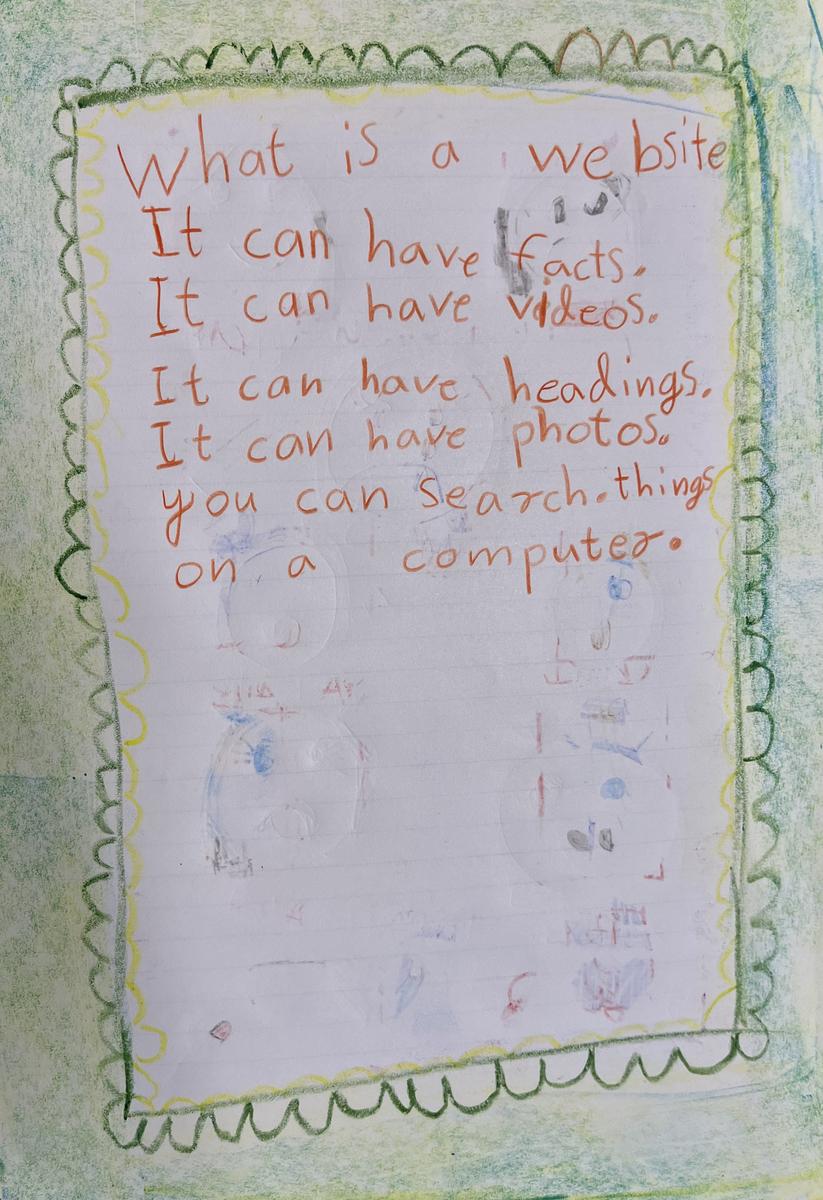 What is a website
It can have facts.
It can have videos.
It can have headings.
It can have photos.
you can search.things
on a computer.